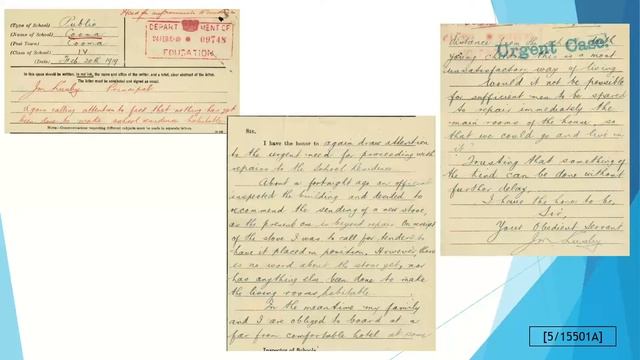 (Type of School) Public
(Name of School) Cooma
(Post Town) Cooma
(Class of School)
(Date) Feb. 20th 1919
DEPARTMENT OF
09748
EDUCATION
In this case should be written, in red ink, the name and office of the writer, and a brief abstract of the letter.
The letter must be continued and signed as usual.
Jon Lusby Principal
Again calling attention to fact that nothing has yet
been done to make school residence habitable
NOTE.—Communications respecting different subjects must be made in separate letters.
Sir,
I have the honor to again draw attention
to the urgent need for proceeding with
repairs to the School Residence
About a fortnight ago an officer
inspected the building and decided to
recommend the sending of a new stove,
as the present one is beyond repair. On receipt
of the stove I was to call for tenders to
have it placed in position. However, there
is no word about the stove yet, nor
has anything else been done to make
the living rooms habitable.
In the meantime my family
and I are obliged to board at a
far from comfortable hotel at some
Inspector of Schools
distance
Urgent Case.
young this is a most
unsatisfactory way of living
Would it not be possible
for sufficient men to be spared
to repair immediately the
main rooms of the house, so
that we could go and live in
it?
Trusting that something of
the kind can be done without
further delay,
I have the honor to be,
Sir,
Your Obedient Servant
Jon Lusby
[5/15501A]